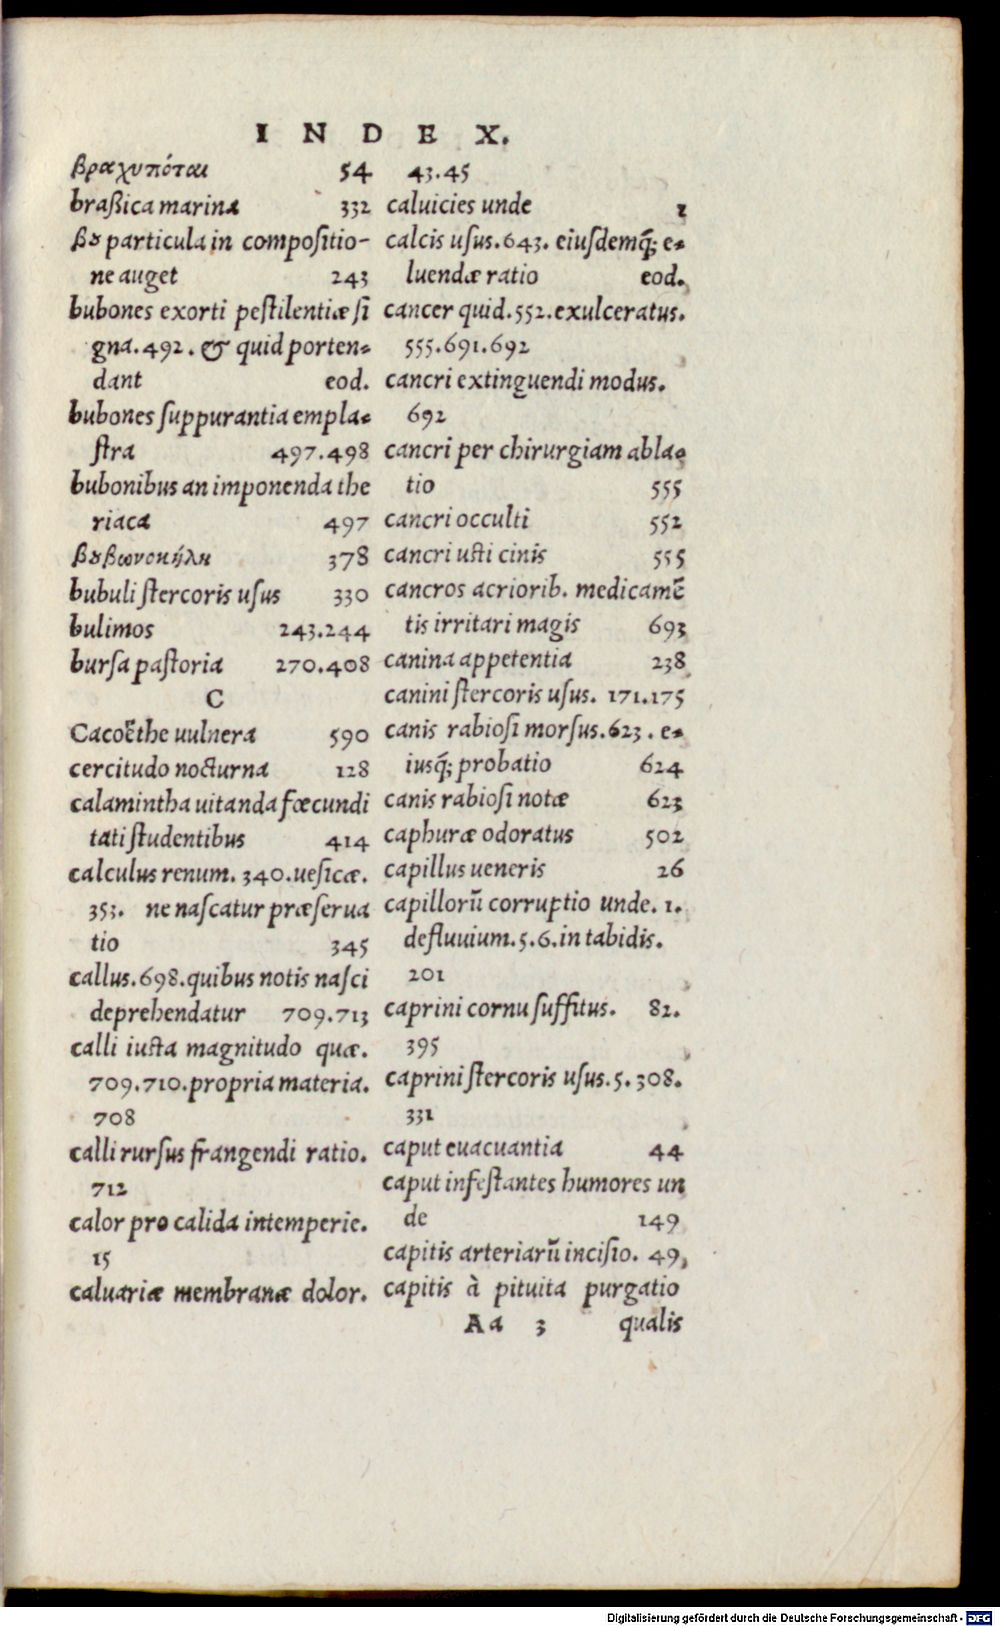 INDEX.
βραχυπόται 54
braßica marina 332
βȣ particula in compositio-
ne auget 243
bubones exorti pestilentiæ si
gna.492. & quid porten=
dant eod.
bubones suppurantia empla=
stra 497.498
bubonibus an imponenda the
riaca 497
βȣβωνοκήλη 378
bubuli stercoris usus 330
bulimos 243.244
bursa pastoria 270.408
C
Cacoëthe uulnera 590
cercitudo nocturna 128
calamintha uitanda fœcundi
tati studentibus 414
calculus renum. 340.uesicæ.
353. ne nascatur præserua
tio 345
callus.698.quibus notis nasci
deprehendatur 709.713
calli iusta magnitudo quæ.
709.710.propria materia.
708
calli rursus frangendi ratio.
712
calor pro calida intemperie.
15
caluariæ membranæ dolor.
43.45
caluicies unde 1
calcis usus.643. eiusdemq́; e=
luendæ ratio eod.
cancer quid.552.exulceratus.
555.691.692
cancri extinguendi modus.
692
cancri per chirurgiam abla=
tio 555
cancri occulti 552
cancri usti cinis 555
cancros acriorib. medicamẽ
tis irritari magis 693
canina appetentia 238
canini stercoris usus. 171.175
canis rabiosi morsus.623. e=
iusq́; probatio 624
canis rabiosi notæ 623
caphuræ odoratus 502
capillus ueneris 26
capillorũ corruptio unde. 1.
defluuium.5.6.in tabidis.
201
caprini cornu suffitus. 82.
395
caprini stercoris usus.5.308.
331
caput euacuantia 44
caput infestantes humores un
de 149
capitis arteriarũ incisio. 49,
capitis à pituita purgatio
Aa 3 qualis
Digitalisierung gefördert durch die Deutsche Forschungsgemeinschaft - DFG